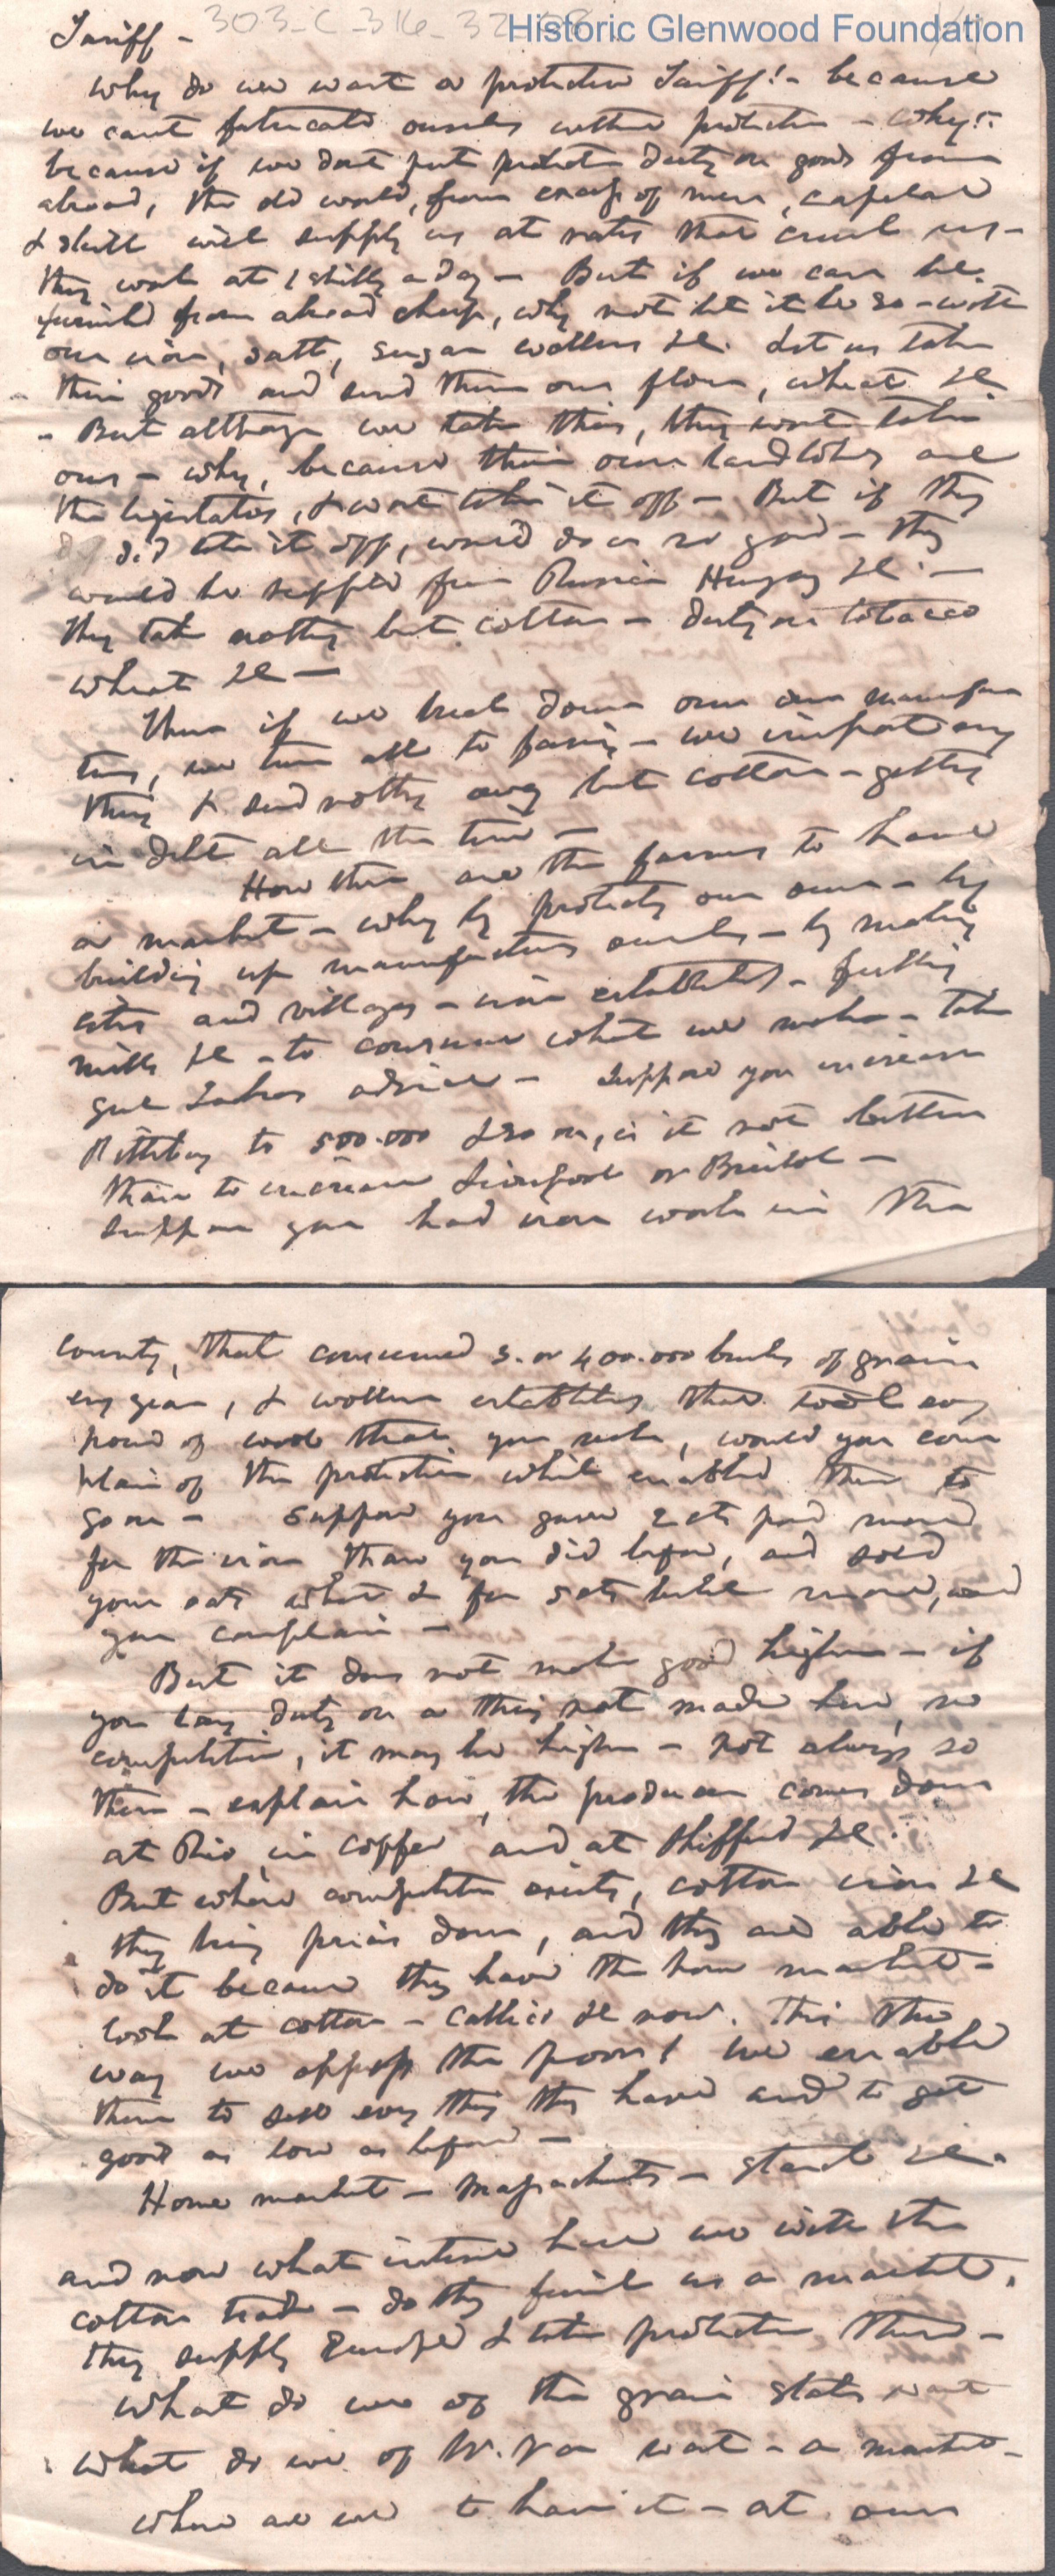 303-C-316-32
Historic Glenwood Foundation
Tariff -
Why do we want a protective Tariff! - because
we cant fabricate ourselves without protection - Why!
because if we dont put protective duty on goods from
abroad, the old world, from excess of men, capital
& skill will supply us at rates that crush us -
they work at 1 shilly a day - But if we can be
furnished from abroad cheap, why not let it be so - with
our iron, salt, sugar wollens &c. Let us take
their goods and send them our flour, wheat &c
- But although we take theirs, they wont take
ours - why, because their own landlords are
the legislators, & wont take it off - But if they
did take it off, would do us no good - they
would be supplied from Russia Hungary &c. -
they take nothing but cotton - duty on tobacco
wheat &c -
Then if we break down our own manufac
tures, we turn all to farming - we import every
thing & send nothing away but cotton - getting
in debt all the time -
How then are the farmers to have
a market - why by protecting our own - by
building up manufactures ourselves - by making
cities and villages - iron establishts - fulling
mills &c - to consume what we make - take
advice - Suppose you increase
Pittsburg to 500.000 & so on, is it not better
than to increase Liverpool or Bristol -
suppose you had iron works in the
county, that consumed 3. or 400.000 bushels of grain
every year, & wollen establishts that took every
pound of wool that you make, would you com
plain of the protection which enabled them to
go on - Suppose you gave 2 cts pound more
for the iron than you did before, and sold
your oats wheat & for 5 cts bushel more, would
you complain -
But it does not make goods higher - if
you lay duty on a thing not made here, no
competition, it may be higher - not always so
then - explain how, the producer comes down
at Rio in coffee and at &c.
But where competition exists, cotton iron &c
they bring prices down, and they are able to
do it because they have the home market -
look at cotton - callico &c now. This the
way we oppress the poor! we enable
them to sell every thing they have and to get
goods as low as before -
Home market - Massachusetts - &c.
and now what interest have we with the
cotton trade - do they furnish us a market.
they supply Europe & take protection there -
What do we of the grain states want
What do we of W. Va want - a market -
where are we to have it - at our